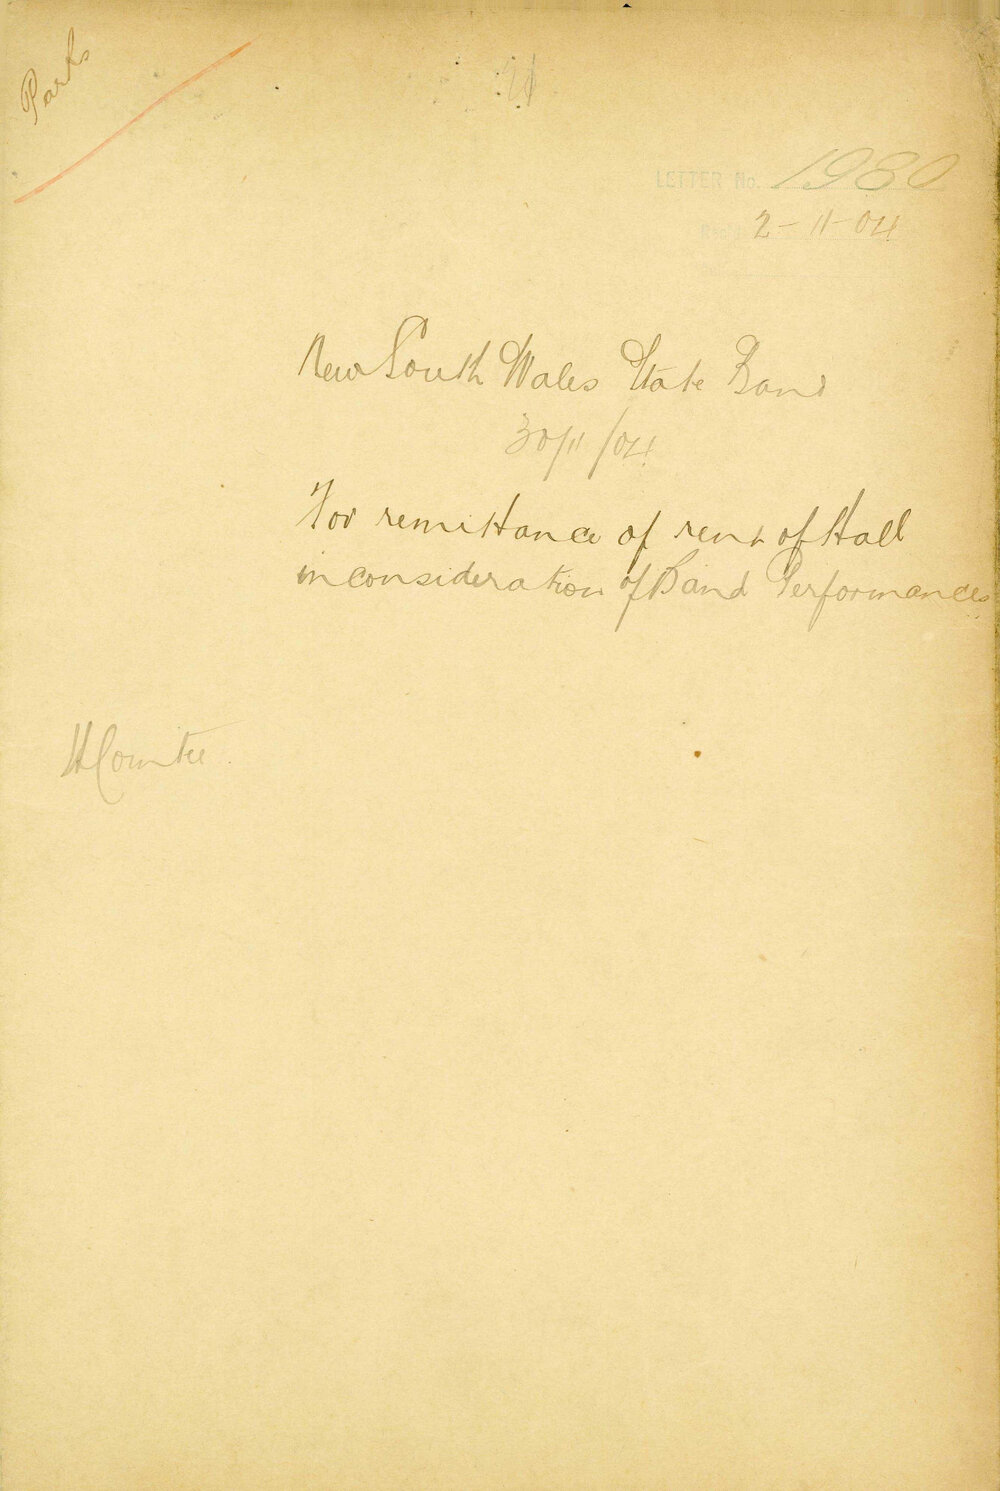 Parks
LETTER No. 1980
2-11-04
New South Wales State Band
30/11/04
For remittance of rent of Hall
in consideration of Band Performances